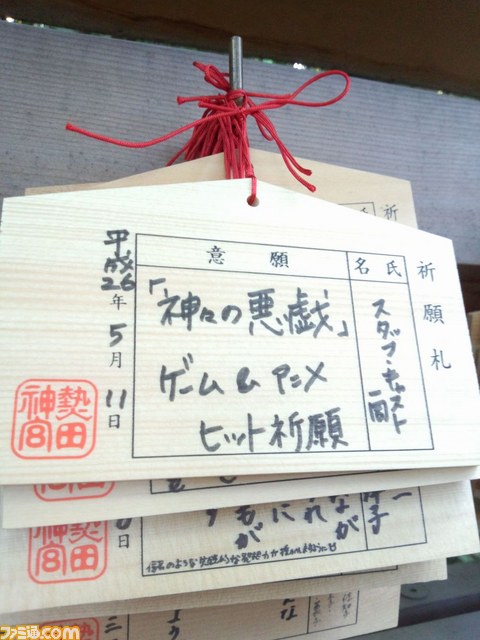 祈願札
氏名
スタッフ・キャスト
一同
願意
「神々の悪戯」
ゲーム&アニメ
ヒット祈願
平成26年5月11日
熱田
神宮
祈
氏
日
ファミ通.com